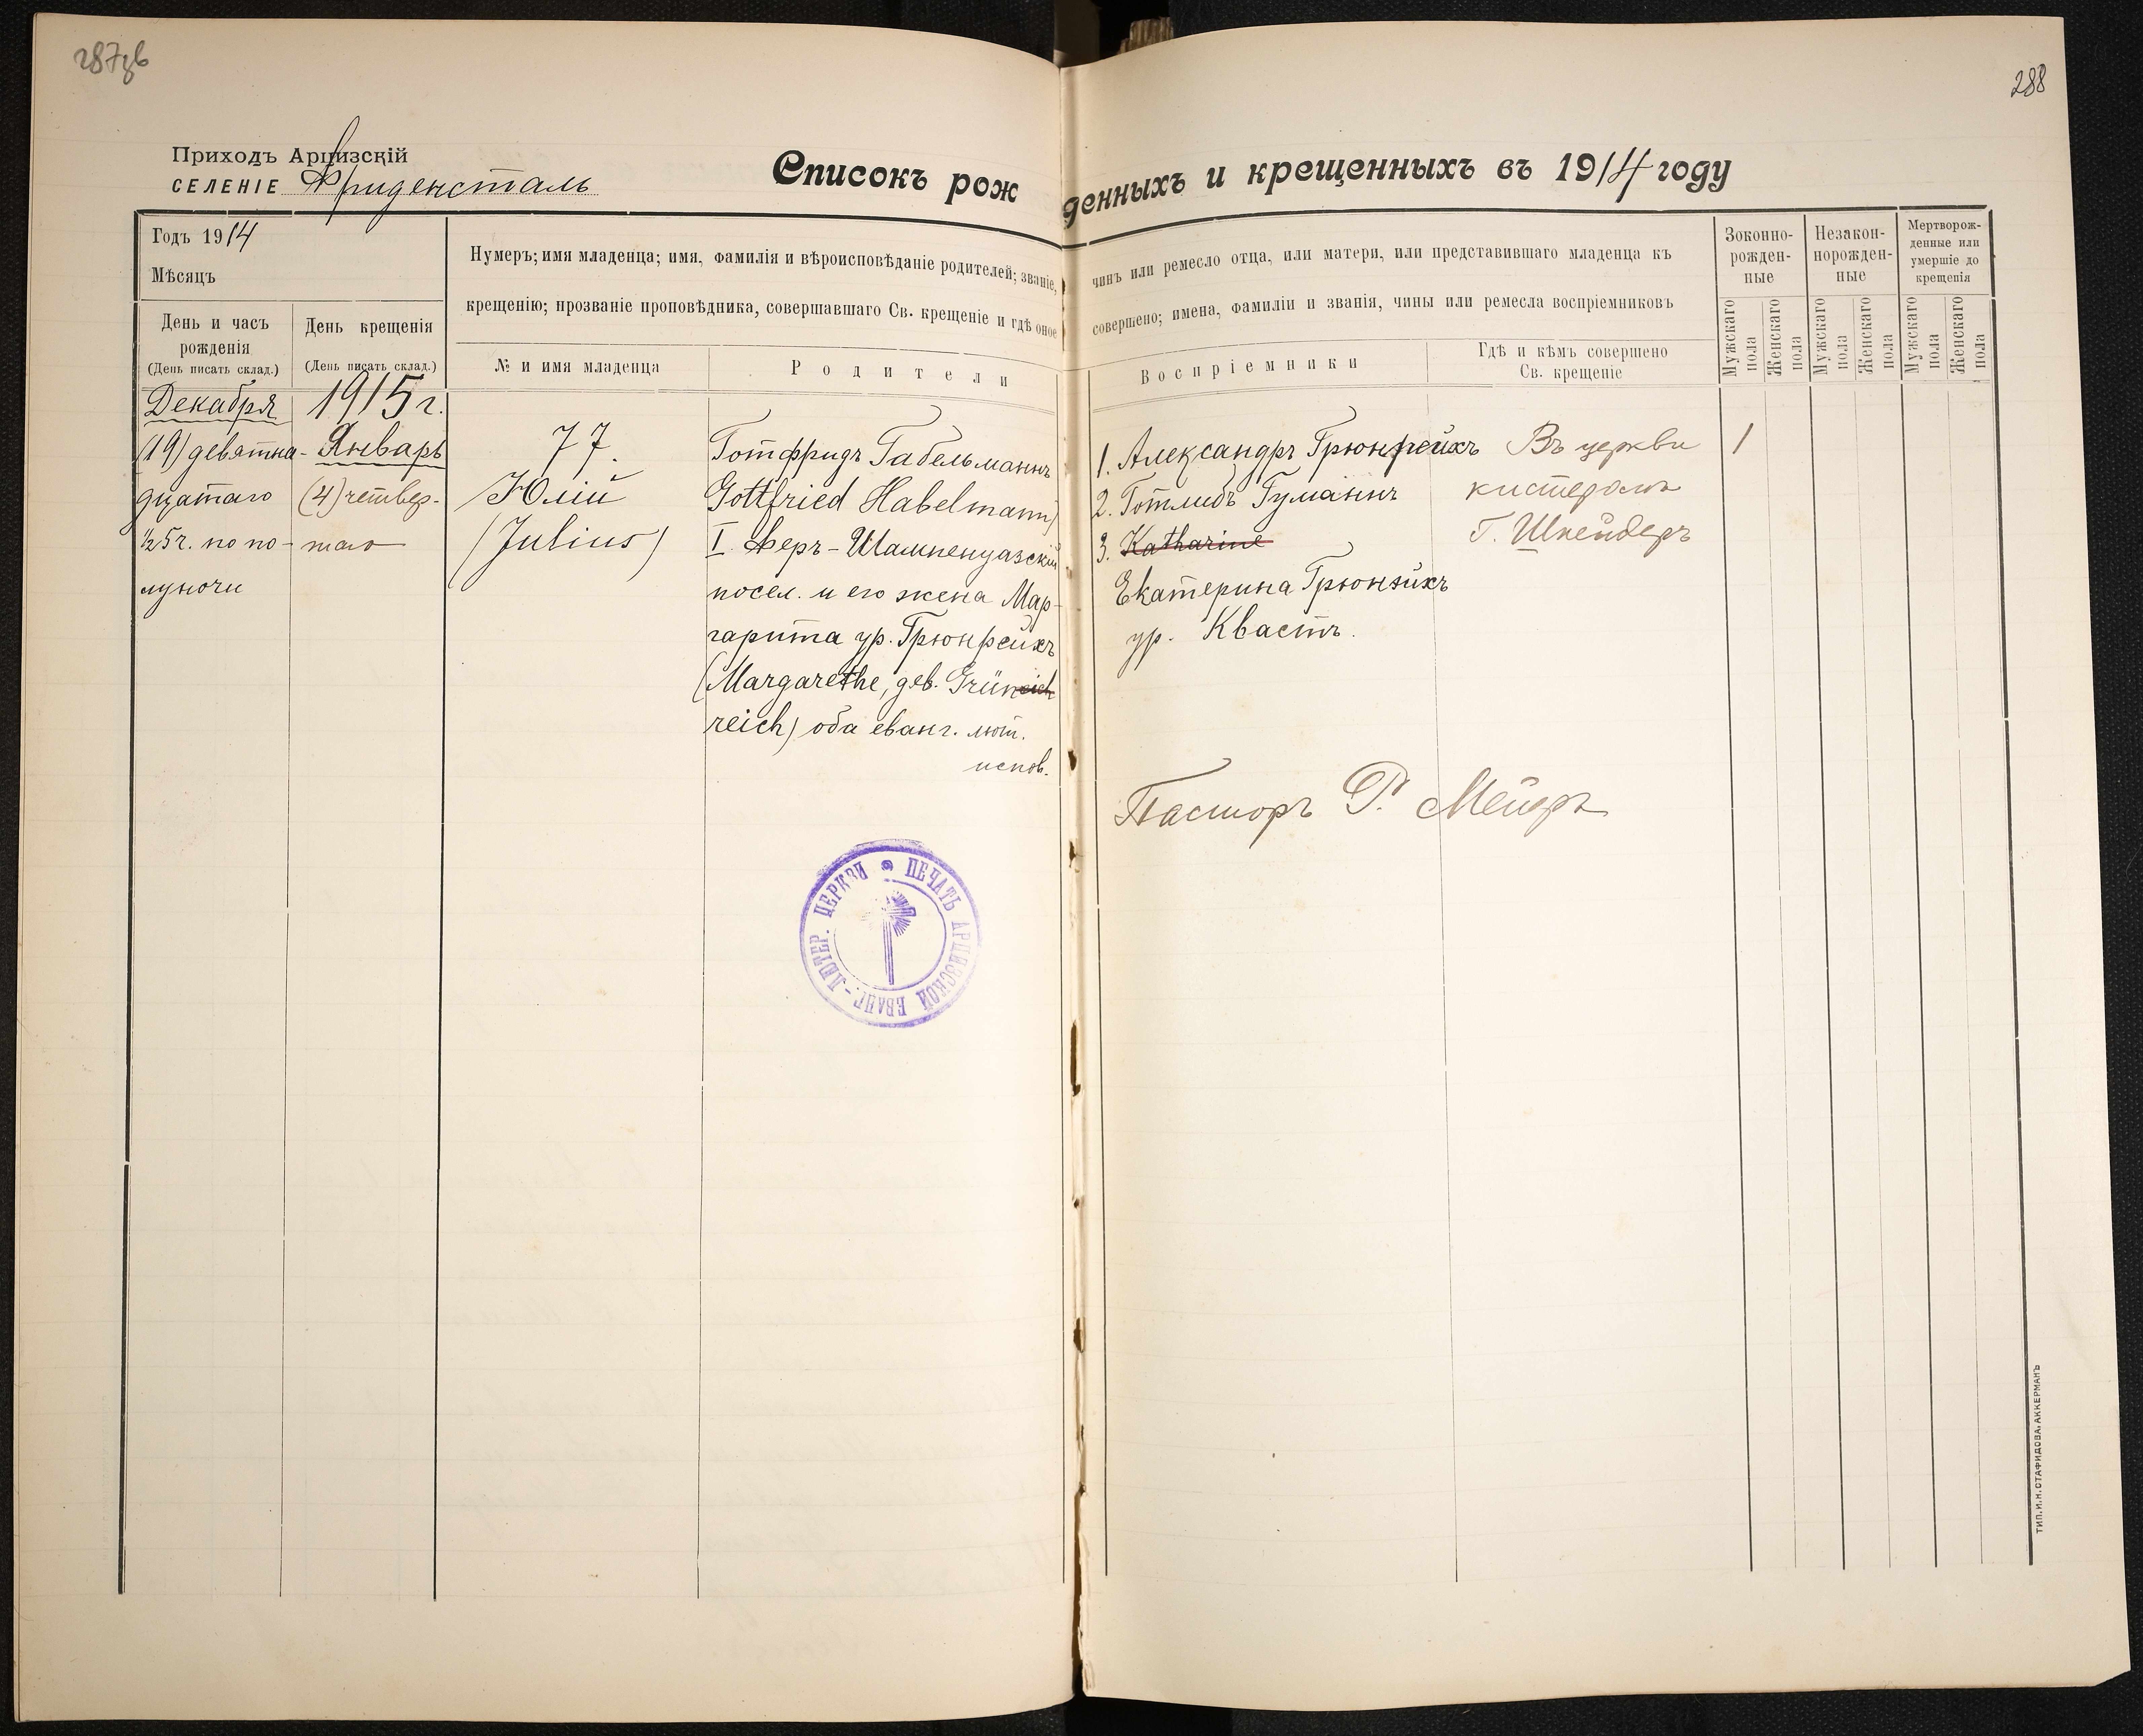 287зв
288
Приходъ Арцизскій
СЕЛЕНІЕ Фриденсталь
Списокъ рожденныхъ и крещенныхъ въ 1914 году
Годъ 1914
Мѣсяцъ
День и часъ рожденія
(День писать склад.)
День крещенія
(День писать склад.)
Нумеръ; имя младенца; имя, фамилія и вѣроисповѣданіе родителей; званіе, чинъ или ремесло отца, или матери, или представившаго младенца къ
крещенію; прозваніе проповѣдника, совершавшаго Св. крещеніе и гдѣ оное совершено; имена, фамиліи и званія, чины или ремесла воспріемниковъ
№ и имя младенца
Родители
Воспріемники
Гдѣ и кѣмъ совершено
Св. крещеніе
Зоконно-
рожден-
ные
Незакон-
норожден-
ные
Мертворож-
денные или
умершіе до
крещенія
Мужскаго пола
Женскаго пола
Мужскаго пола
Женскаго пола
Мужскаго пола
Женскаго пола
Декабря
(19) девятна-
дцатаго
½ 5 ч. по по-
луночи
1915 г.
Январь
(4) четвер-
таго
77.
Юлій
(Julius)
Готфридъ Габельманнъ
Gottfried Habelmann)
I. Феръ-Шампенуазскій
посел. и его жена Мар-
гарита ур. Грюнрейхъ
(Margarethe, geb. Grüneich
reich) оба еванг. лют.
испов.
1. Александръ Грюнрейхъ
2. Готлибъ Гуманнъ
3. Katharine
Екатерина Грюнейхъ
ур. Квастъ.
Въ церкви
кистеромъ
Г. Шнейдеръ
1
Пасторъ Р. Мейеръ
ПЕЧАТЬ АРЦИЗСКОЙ ЕВАНГ.-ЛЮТЕР. ЦЕРКВИ
ТИП. И. Н. СТАФИДОВА, АККЕРМАНЪ